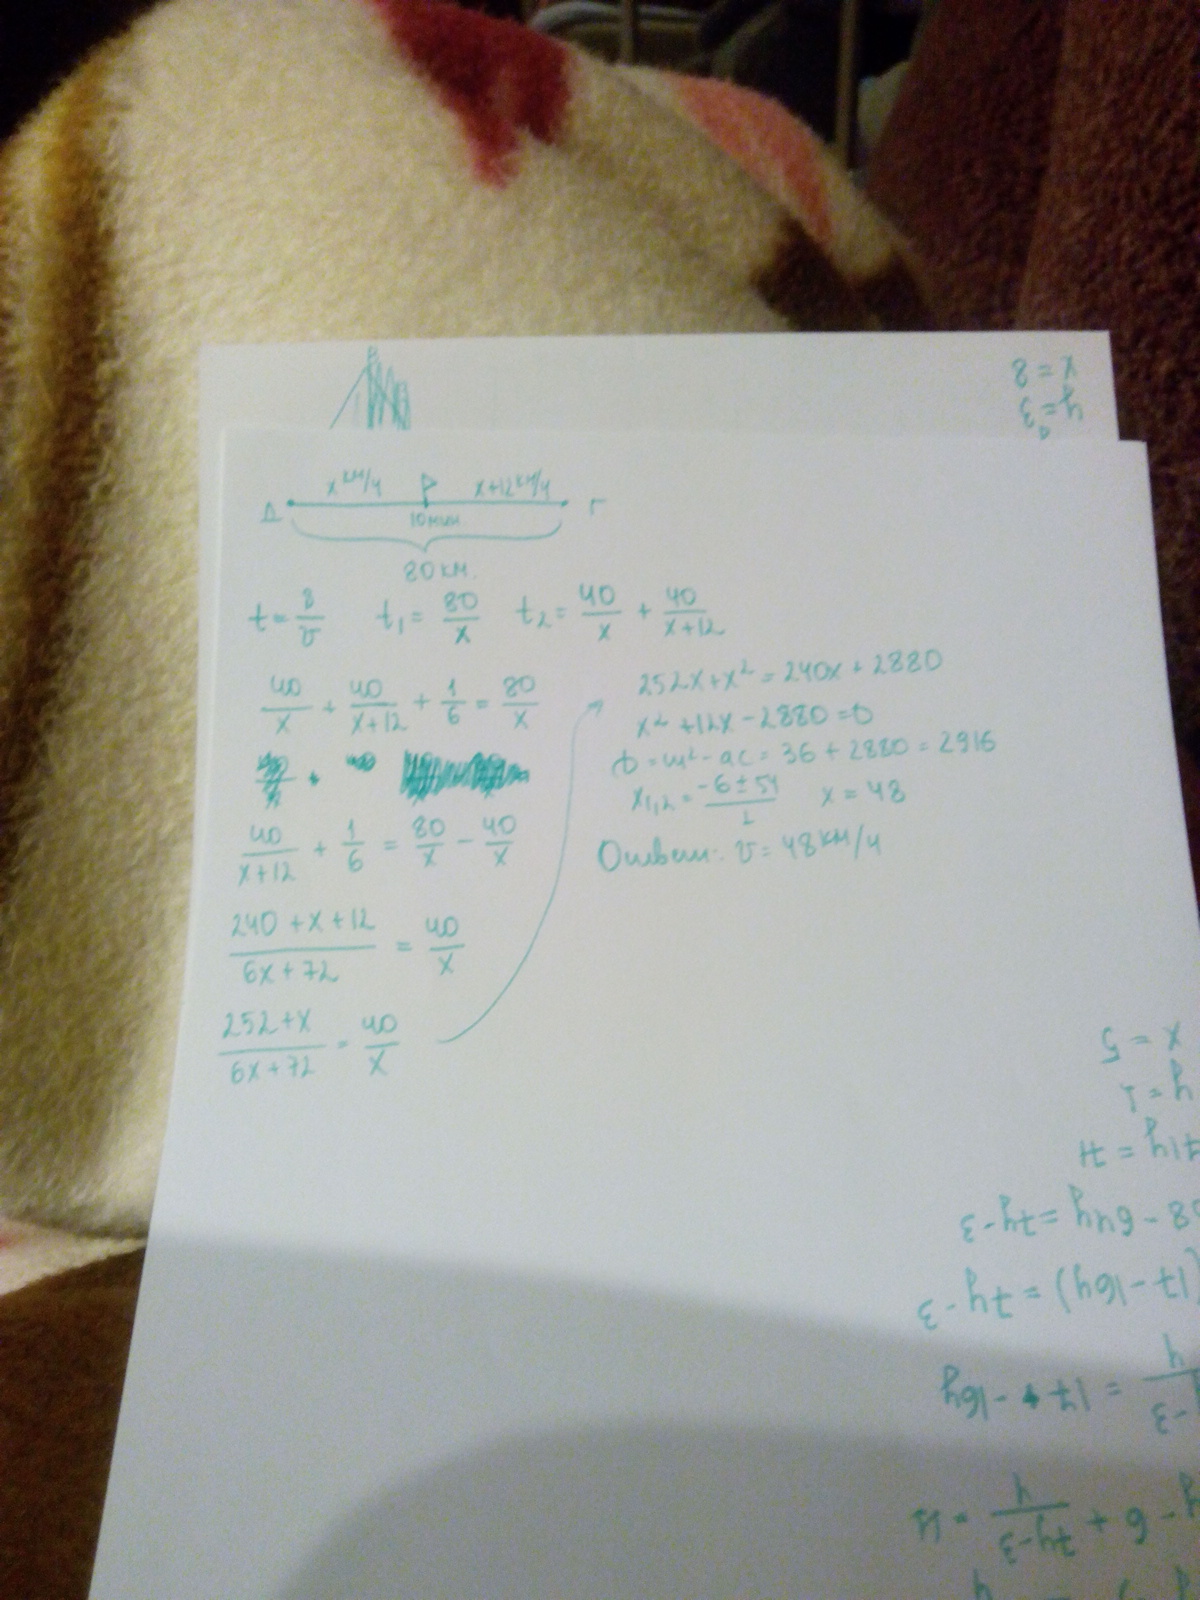 x = 8
y = 3
x км/ч P x+12 км/ч
Д 10 мин Г
80 км.
t = 8/v t₁ = 80/x t₂ = 40/x + 40/(x+12)
40/x + 40/(x+12) + 1/6 = 80/x
40/(x+12) + 1/6 = 80/x - 40/x
(240 + x + 12)/(6x + 72) = 40/x
(252 + x)/(6x + 72) = 40/x
252x + x² = 240x + 2880
x² + 12x - 2880 = 0
D = m² - ac = 36 + 2880 = 2916
x₁,₂ = (-6 ± 54)/1 x = 48
Ответ: v = 48 км/ч
x = 5
y = 1
71y = 71
68 - 64y = 7y - 3
(17 - 16y) = 7y - 3
= 17 - 16y
- 6 + (7y - 3)/4 = 11